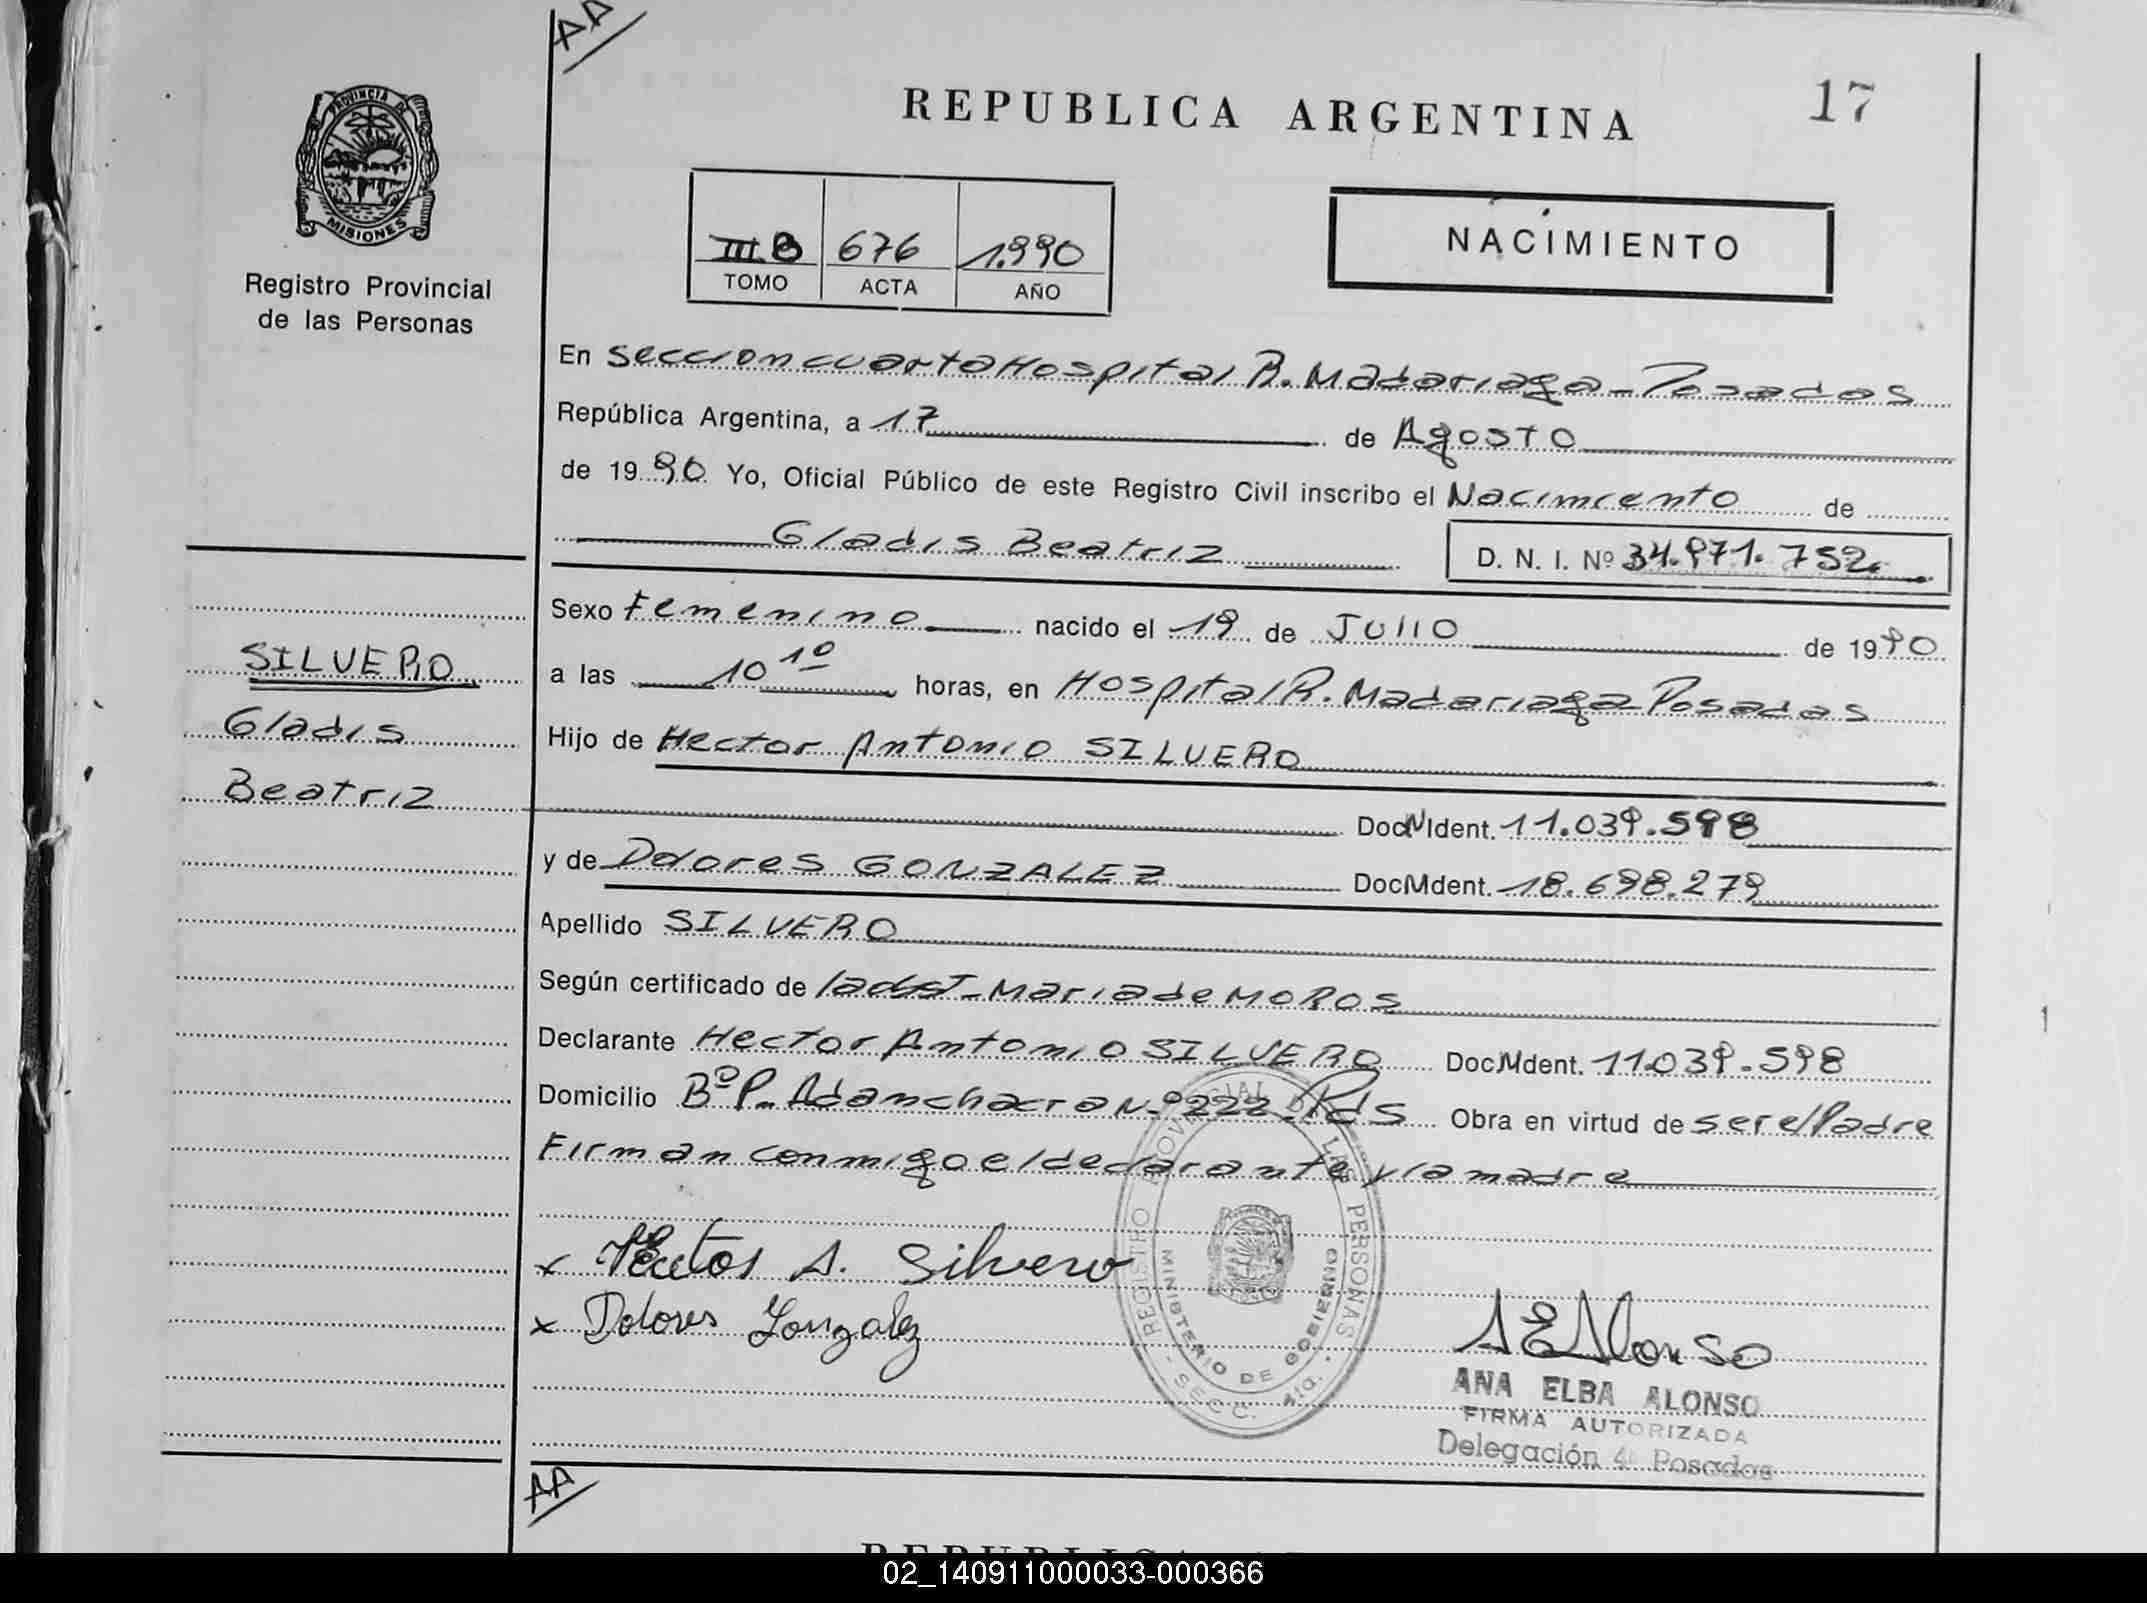 AA
REPUBLICA ARGENTINA
17
PROVINCIA DE
MISIONES
Registro Provincial
de las Personas
III B 676 1.990
TOMO ACTA AÑO
NACIMIENTO
En Seccion cuarta Hospital R. Madariaga - Posadas
República Argentina, a 17 de Agosto
de 1990 Yo, Oficial Público de este Registro Civil inscribo el Nacimiento de
Gladis Beatriz D. N. I. Nº 34.971.752.
Sexo Femenino nacido el 19 de Julio de 1990
SILVERO
a las 10 10 horas, en Hospital R. Madariaga Posadas
Gladis
Hijo de Hector Antonio SILVERO
Beatriz
Doc. N Ident. 11.039.598
y de Dolores GONZALEZ Doc. N Ident. 18.698.279
Apellido SILVERO
Según certificado de la obst- Maria de MOROS
Declarante Hector Antonio SILVERO Doc. N Ident. 11.039.598
Domicilio Bº P. Adam chacra Nº 222 - Pdas Obra en virtud de ser el Padre
Firman conmigo el declarante y la madre
x Hector A. Silvero
x Dolores Gonzalez
REGISTRO PROVINCIAL DE LAS PERSONAS
MINISTERIO DE GOBIERNO
- SECC. 4ta. -
A E Alonso
ANA ELBA ALONSO
FIRMA AUTORIZADA
Delegación 4a Posadas
AA
02_140911000033-000366